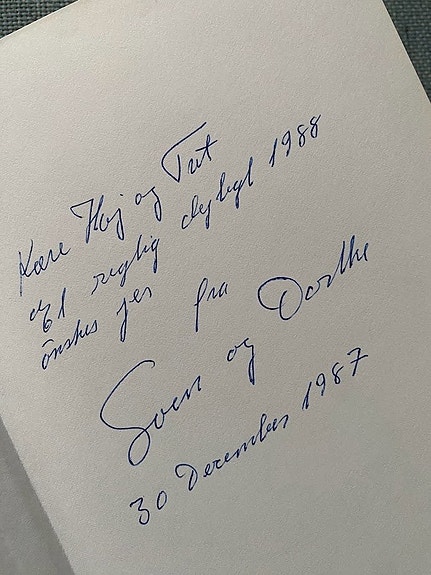 Kære Høj og Tut
og 1 rigtig dejligt 1988
ønskes jer fra
Sven og Dorthe
30 December 1987